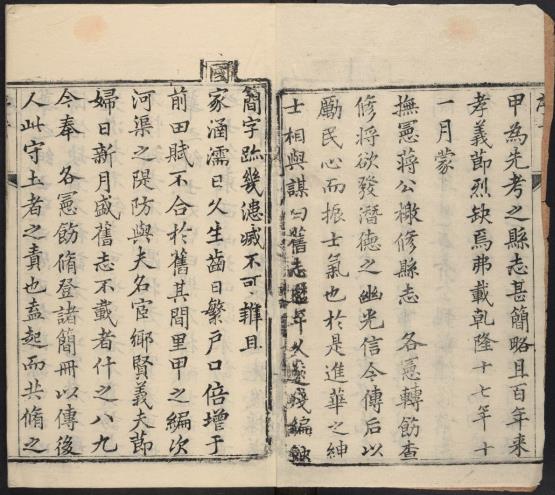 甲為先考之縣志甚簡略且百年來
孝義節烈缺焉弗載乾隆十七年十
一月蒙
撫憲蔣公檄修縣志 各憲轉飭查
修將欲發潛德之幽光信今傳后以
勵民心而振士氣也於是進華之紳
士相與謀曰舊志歷年久遠殘編蝕
簡字跡幾漶滅不可辨且
國
家涵濡日久生齒日繁户口倍增于
前田賦不合於舊其間里甲之編次
河渠之隄防與夫名宦鄉賢義夫節
婦日新月盛舊志不載者什之八九
今奉 各憲飭脩登諸簡冊以傳後
人此守土者之責也盍起而共脩之